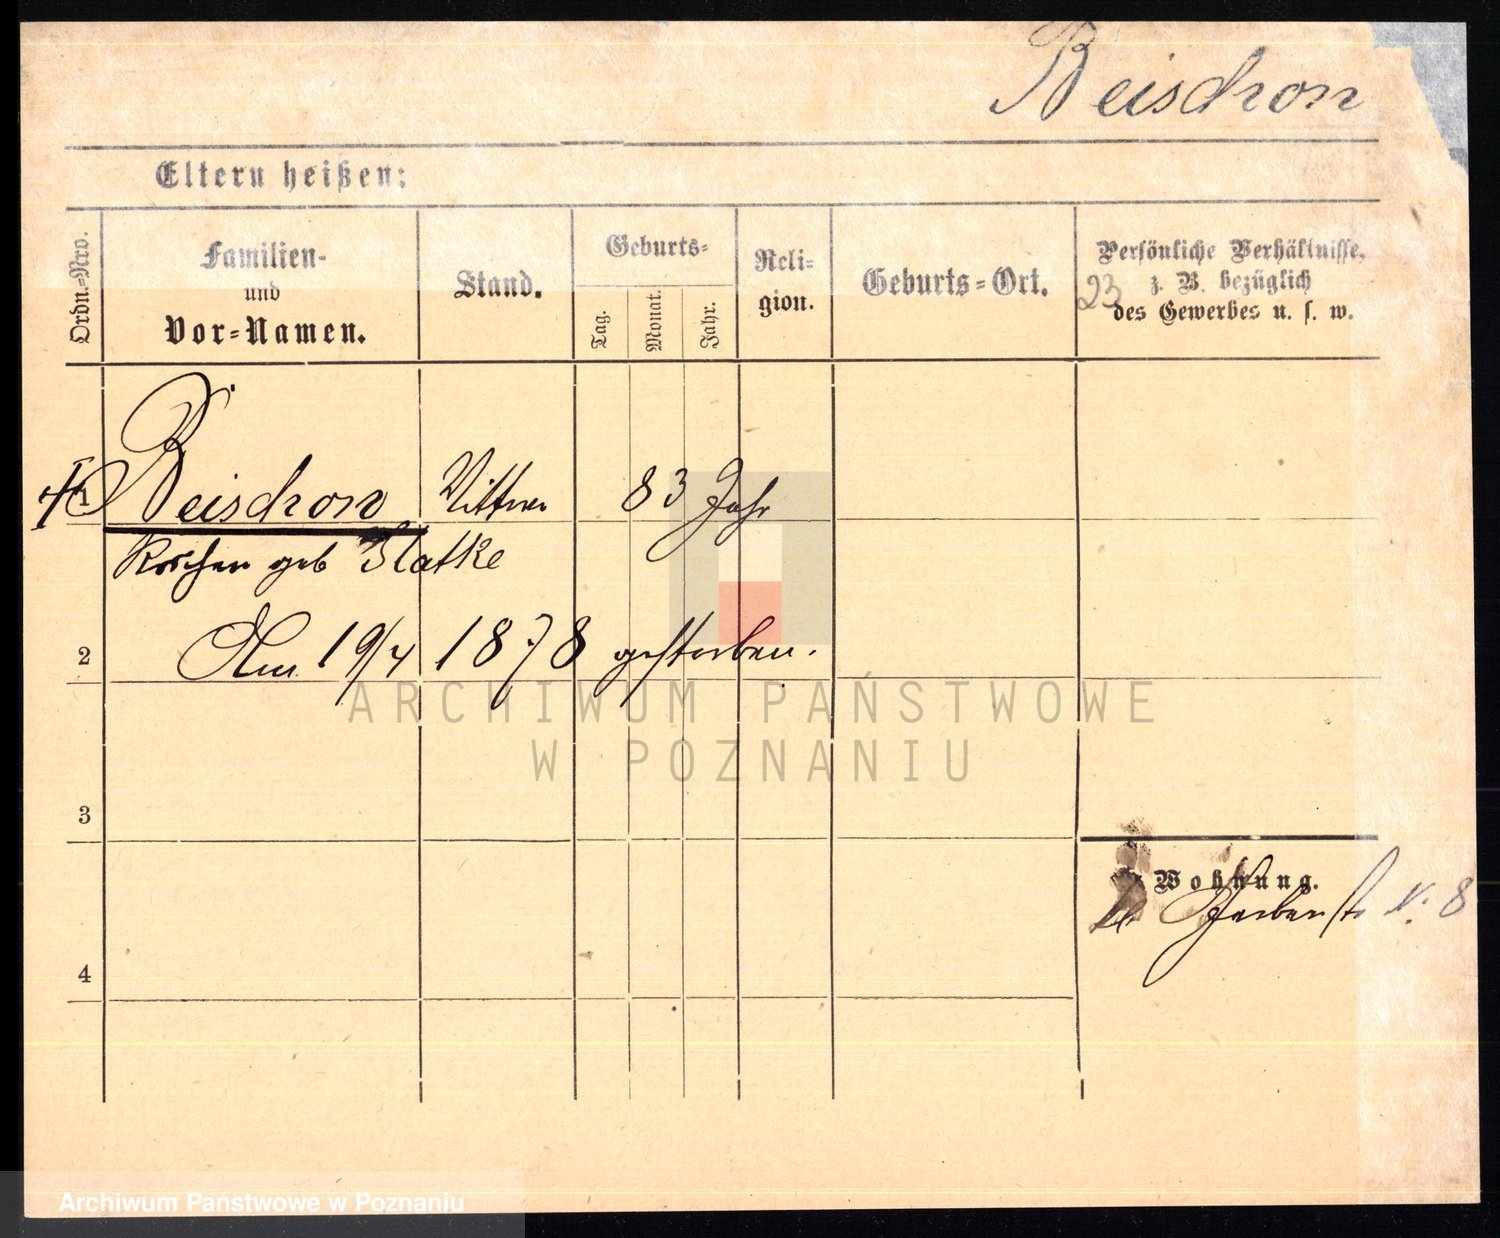 Beischon
Eltern heißen:
Ordn.=Nro.
Familien-
und
Vor=Namen.
Stand.
Geburts=
Tag.
Monat.
Jahr.
Reli=
gion.
Geburts=Ort.
Persönliche Verhältnisse,
z. B. bezüglich
des Gewerbes u. s. w.
23
1
Beischon Wittwe 83 Jahr
geb
Am 19/4 1878 gestorben.
2
3
4
Wohnung.
Gerberstr N. 8
ARCHIWUM PAŃSTWOWE
W POZNANIU
Archiwum Państwowe w Poznaniu